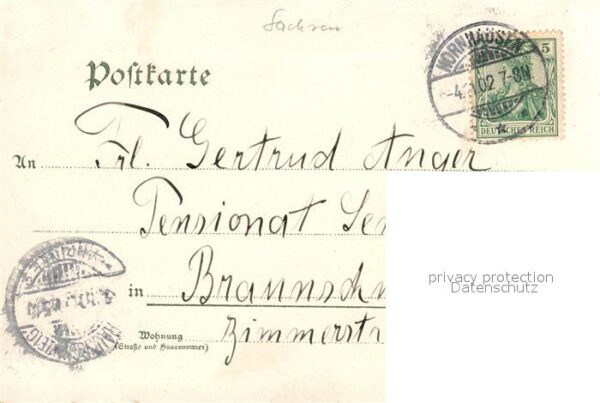 Sachsen
Postkarte
HORNHAUSEN
02 7-8N
5
DEUTSCHES REICH
An Frl. Gertrud Anger
Pensionat
in Braunsch
Wohnung Zimmerstr
(Straße und Hausnummer)
privacy protection
Datenschutz